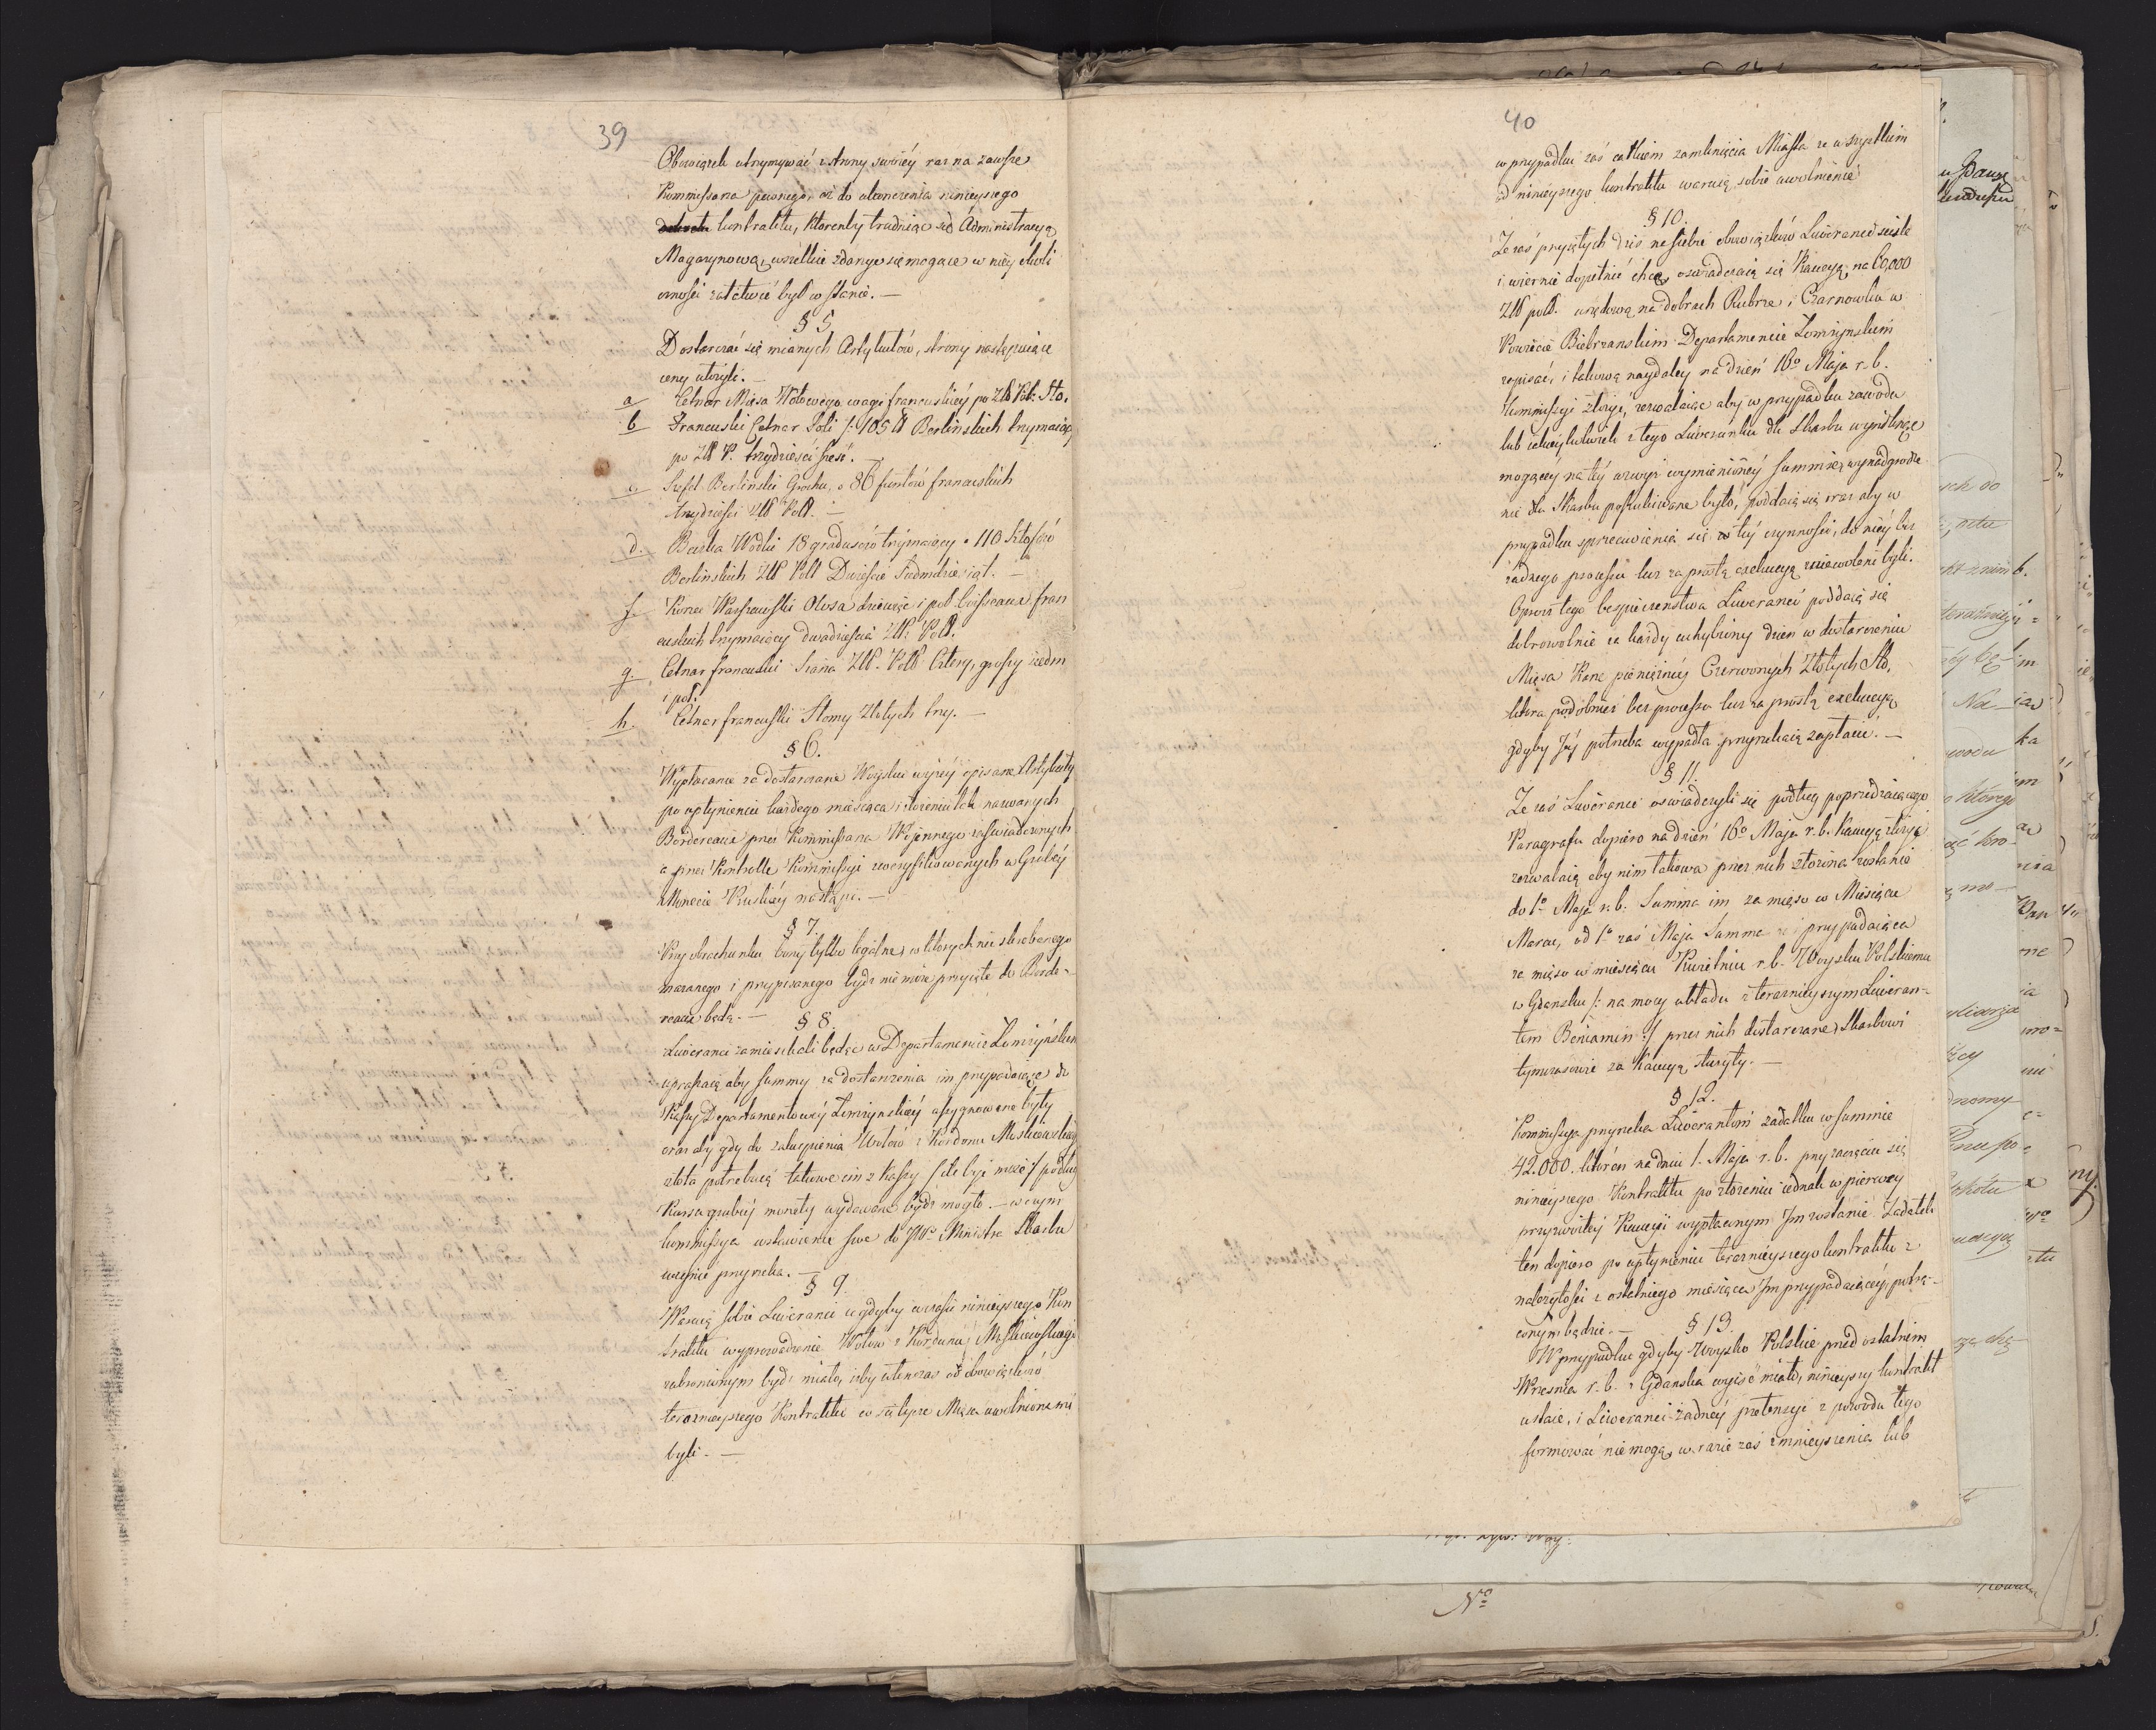 39
Obowiązek utrzymywać z strony swoiéy raz na zawsze
Kommissarza pewnego, aż do ukończenia ninieyszego
kontraktu, którenby trudniąc się Administracyą
Magazynową, wszelkie zdarzyć się mogące w niéy okoli
czności załatwić był w stanie. —
§ 5
Dostarczać się mianych Artykułów, strony następuiące
ceny ułożyli. —
a Cetnar Mięsa Wołowego wagi francuskiéy po Złł Pol: Sto.
b Francuski Cetnar Soli /: 105 ℔ Berlińskich trzymaiący
po Złł P. trzydzieści sześć. —
c Szefel Berliński Grochu, o 86 funtów francuskich
trzydzieści Złł Poll. —
d. Beczka Wodki 18 gradusów trzymaiący o 110 Sztofów
Berlińskich Złł Poll Dwieście Siedmdziesiąt. —
f. Korzec Warszawski Owsa dziewięć i pół boisseaux fran
cuskich trzymaiący dwadzieścia Złł: Poll.
g. Cetnar francuski Siana Złł. Poll Cztery, groszy siedm
i poł.
h. Cetnar francuski Słomy Złotych trzy. —
§ 6.
Wypłacanie za dostarczane Woysku wyżéy opisane Artykuły
po upłynieniu każdego miesiąca i złożeniu tak nazwanych
Bordereaux przez Kommissarza Wojennego zaświadczonych
a przez Kontrolle Kommissyi zweryfikowanych w Grubéy
Monecie Pruskiéy nastąpi. —
§ 7.
Przy obrachunku bony tylko legalne, w których nic skrobanego
mazanego i przypisanego bydź nie może przyięte do Borde-
reaux będą. —
§ 8
Liweranci zamieszkali będąc w Departamencie Łomżyńskim
upraszaią aby summy za dostarczenia im przypadaiące do
Kassy Departamentowéy Łomżyńskiéy assygnowane były
oraz aby gdy do zakupienia Wołów z Kordonu Moskiewskiego
złota potrzebuią takowe im z kassy / ile być może / podług
Kursu grubéy monety wydawane bydź mogło. — w czym
kommissya wstawienie swe do JW° Ministra Skarbu
uczynić przyrzeka. —
§ 9
Waruią sobie Liweranci iż gdyby w czasie ninieyszego Kon
traktu wyprowadzenie Wołów z Kordonu Moskiewskiego
zabronionym bydź miało, iżby wtenczas od obowiązków
teraznieyszego Kontraktu co się tycze Mięsa uwolnionemi
byli. —
40
w przypadku zaś całkiem zamknięcia Miasta ze wszystkiem
od ninieyszego kontraktu waruią sobie uwolnienie
§ 10.
Że zaś przyiętych dziś na siebie obowiązków Liweranci ściśle
i wiernie dopełnić chcą, oswiadczaią się Kaucyą na 60,000
Złł poll. urzędową na dobrach Rubrze, i Czarnowku w
Powiecie Biebrzanskim Departamencie Łomżynskiem
zapisać, i takową naydaley na dzień 16° Maja r. b.
kommissyi złożyć, zezwalaiąc aby w przypadku zawodu
lub iakieykolwiek z tego Liwerunku dla Skarbu wyniknąć
mogącey na téy wzwyż wymienionéy summie wynadgrodze
nie dla Skarbu poszukiwane było, poddaią się oraz aby w
przypadku sprzeciwienia się w téy czynności, do niéy bez
żadnego processu lecz za prostą exekucyą zniewoleni byli.
Oprócz tego bespieczeństwa Liweranci poddaią się
dobrowolnie za każdy uchybiony dzień w dostarczeniu
Mięsa Karze pieniężnéy Czerwonych Złotych Sto,
która podobnież bez processu lecz za prostą exekucyą
gdyby Jéy potrzeba wypadła przyrzekaią zapłacić. —
§ 11.
Że zaś Liweranci oswiadczyli się podług poprzedzaiącego
Paragrafu dopiero na dzień 16° Maja r. b. kaucyą złożyć
zezwalaią aby nim takowa przez nich złożona zostanie
do 1° Maja r. b. Summa im za mięso w Miesiącu
Marcu, od 1° zaś Maja Summa przypadaiąca
za mięso w miesiącu Kwietniu r. b. Woysku Polskiemu
w Gdansku /: na mocy układu z teraznieyszym Liweran-
tem Beniamin :/ przez nich dostarczane, Skarbowi
tymczasowie za Kaucyą służyły. —
§ 12.
Kommissya przyrzeka Liwerantom zadatku w summie
42.000. któren na dniu 1. Maja r. b. przy zaczęciu się
ninieyszego Kontraktu po złożeniu iednak w pierwey
przyzwoitéy Kaucyi wypłaconym Im zostanie. Zadatek
ten dopiero po upłynieniu teraznieyszego kontraktu z
należytości z ostatniego miesiąca Im przypadaiącéy, potrą-
conym będzie. —
§ 13.
W przypadku gdyby Woysko Polskie przed ostatnim
Września r. b. z Gdańska wyiść miało, ninieyszy kontrakt
ustaie, i Liweranci żadnéy pretensyi z powodu tego
formować nie mogą, w razie zaś zmnieyszenia lub
N°